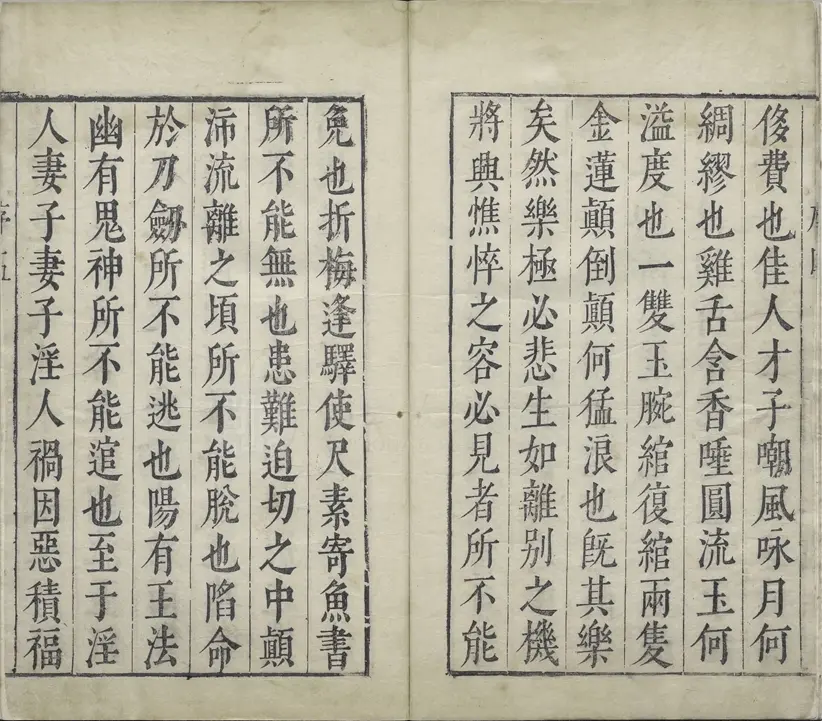 侈費也佳人才子嘲風咏月何
綢繆也雞舌含香唾圓流玉何
溢度也一雙玉腕綰復綰兩隻
金蓮顛倒顛何猛浪也旣其樂
矣然樂極必悲生如離別之機
將興憔悴之容必見者所不能
免也折梅逢驛使尺素寄魚書
所不能無也患難迫切之中顛
沛流離之頃所不能脫也陷命
於刀劒所不能逃也陽有王法
幽有鬼神所不能逭也至于淫
人妻子妻子淫人禍因惡積福
序五